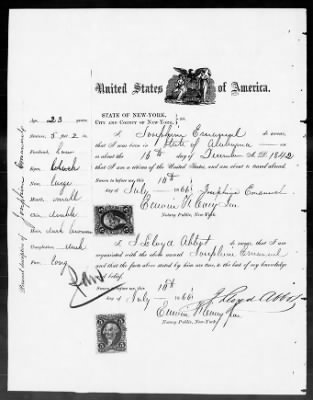 United States of America.
STATE OF NEW-YORK,
CITY AND COUNTY OF NEW-YORK, ss:
I Josephine Emanuel do swear,
that I was born in State of Alabama
on or about the 16th day of December A. D. 1842
that I am a citizen of the United States, and am about to travel abroad.
Sworn to before me this 10th
day of July 1866 Josephine Emanuel
Notary Public, New-York.
I J Lloyd Abbot do swear, that I am
acquainted with the above named Josephine Emanuel
and that the facts above stated by him are true, to the best of my knowledge
and belief.
Sworn to before me, this 10th
day of July 1866 J. Lloyd Abbot
Notary Public, New-York.
Personal description of Josephine Emanuel
Age, 23 years
Stature, 5 feet 2 in
Forehead,
Eyes,
Nose, large
Mouth, small
Chin, double
Hair, dark brown
Complexion, dark
Face, long